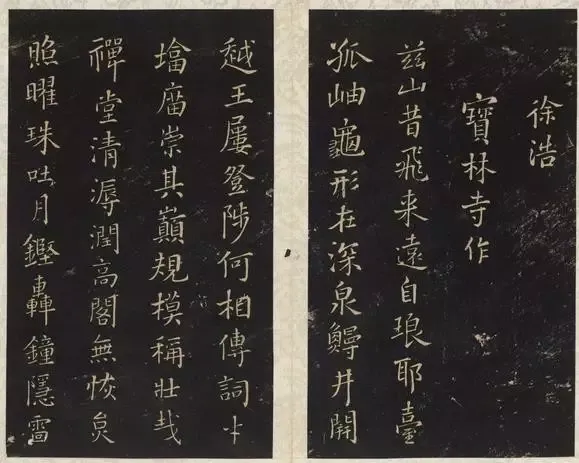 徐浩
寶林寺作
兹山昔飛来遠自琅耶臺
孤岫龜形在深泉鰻井開
越王屢登陟何相傳詞才
塔庿崇其巔規模稱壯哉
禪堂清溽潤高閣無恢炱
照曜珠吐月鏗轟鐘隱雷